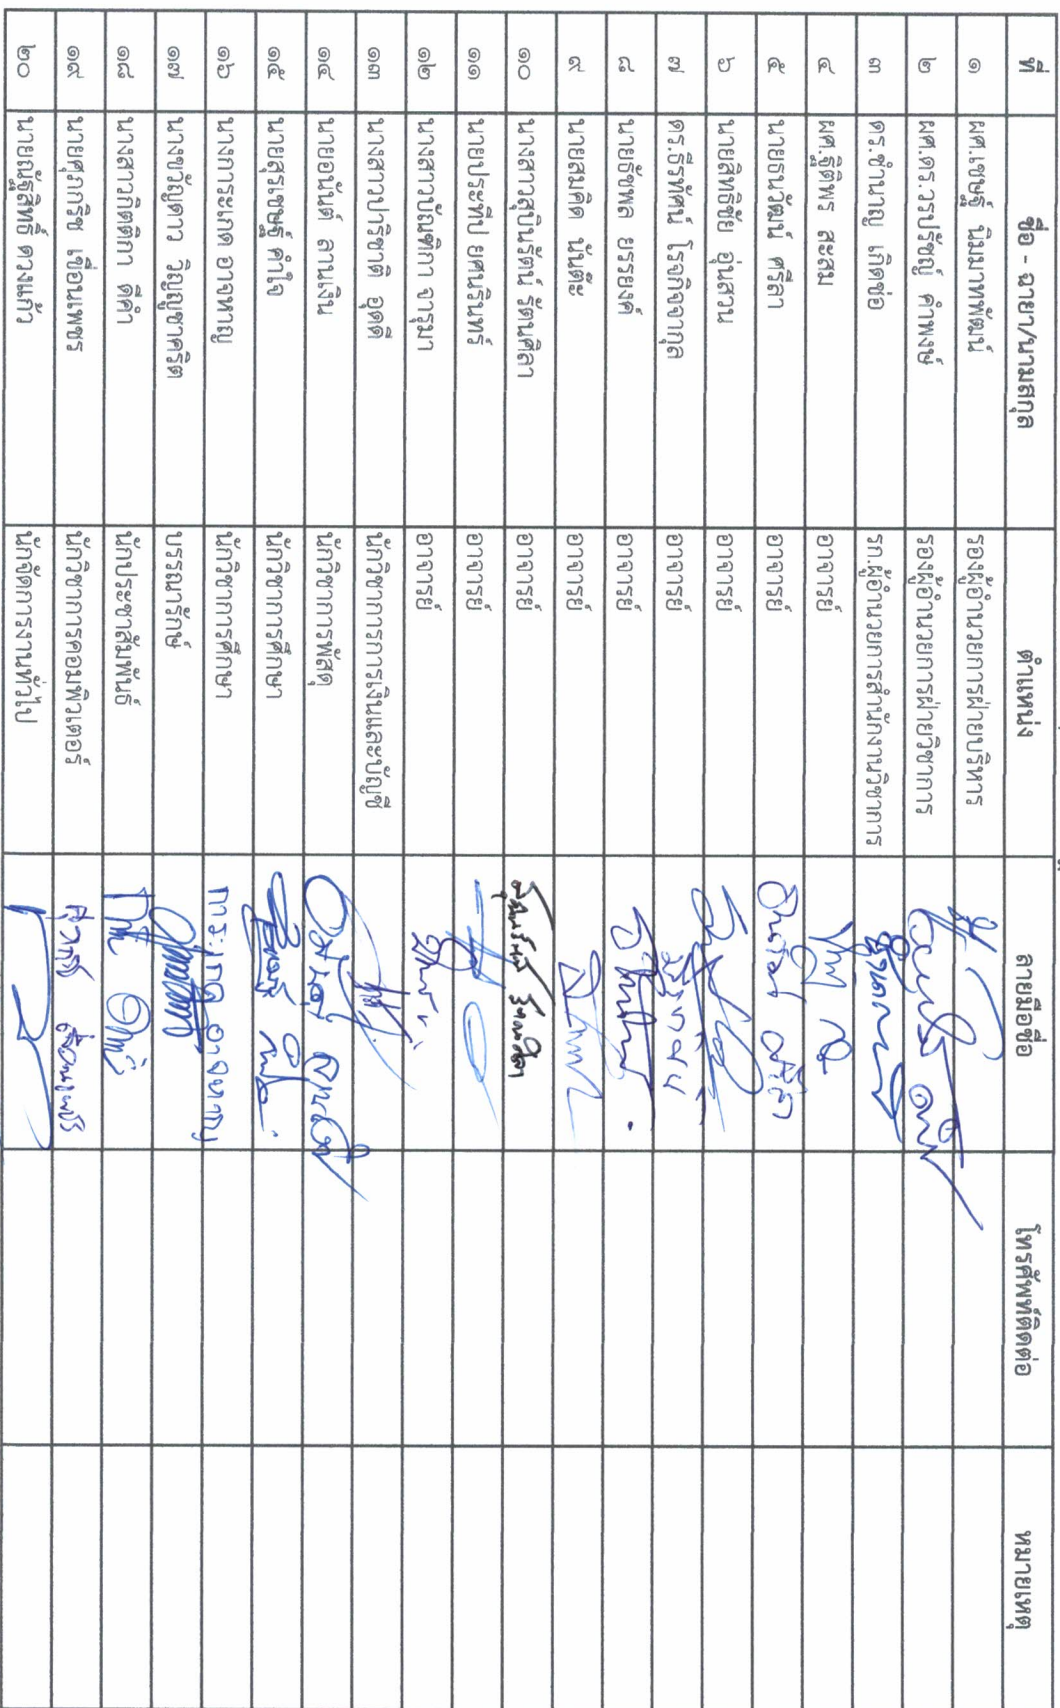 ที่ ชื่อ - ฉายา/นามสกุล ตำแหน่ง ลายมือชื่อ โทรศัพท์ติดต่อ หมายเหตุ
๑ ผศ.เชษฐ์ นิมมาทพัฒน์ รองผู้อำนวยการฝ่ายบริหาร
๒ ผศ.ดร.วรปรัชญ์ คำพงษ์ รองผู้อำนวยการฝ่ายวิชาการ
๓ ดร.ชำนาญ เกิดช่อ รก.ผู้อำนวยการสำนักงานวิชาการ
๔ ผศ.ฐิติพร สะสม อาจารย์
๕ นายธนวัฒน์ ศรีลา อาจารย์ ธนวัฒน์ ศรีลา
๖ นายสิทธิชัย อุ่นสวน อาจารย์
๗ ดร.ธีรทัศน์ โรจกิจจากุล อาจารย์
๘ นายธัชพล ยรรยงค์ อาจารย์
๙ นายสมคิด นันต๊ะ อาจารย์
๑๐ นางสาวสุบินรัตน์ รัตนศิลา อาจารย์ สุบินรัตน์ รัตนศิลา
๑๑ นายประทีป ยศนรินทร์ อาจารย์
๑๒ นางสาวบัณฑิกา จารุมา อาจารย์
๑๓ นางสาวปาริชาติ อุดดี นักวิชาการการเงินและบัญชี
๑๔ นายอนันต์ ลานเงิน นักวิชาการพัสดุ
๑๕ นายสุรเชษฐ์ คำใจ นักวิชาการศึกษา
๑๖ นางการะเกด อาจหาญ นักวิชาการศึกษา การะเกด อาจหาญ
๑๗ นางขวัญดาว วิญญชาคริต บรรณารักษ์
๑๘ นางสาวกิตติกา ดีคำ นักประชาสัมพันธ์
๑๙ นายศุภกริช เขื่อนเพชร นักวิชาการคอมพิวเตอร์ ศุภกริช เขื่อนเพชร
๒๐ นายณัฐสิทธิ์ ดวงแก้ว นักจัดการงานทั่วไป